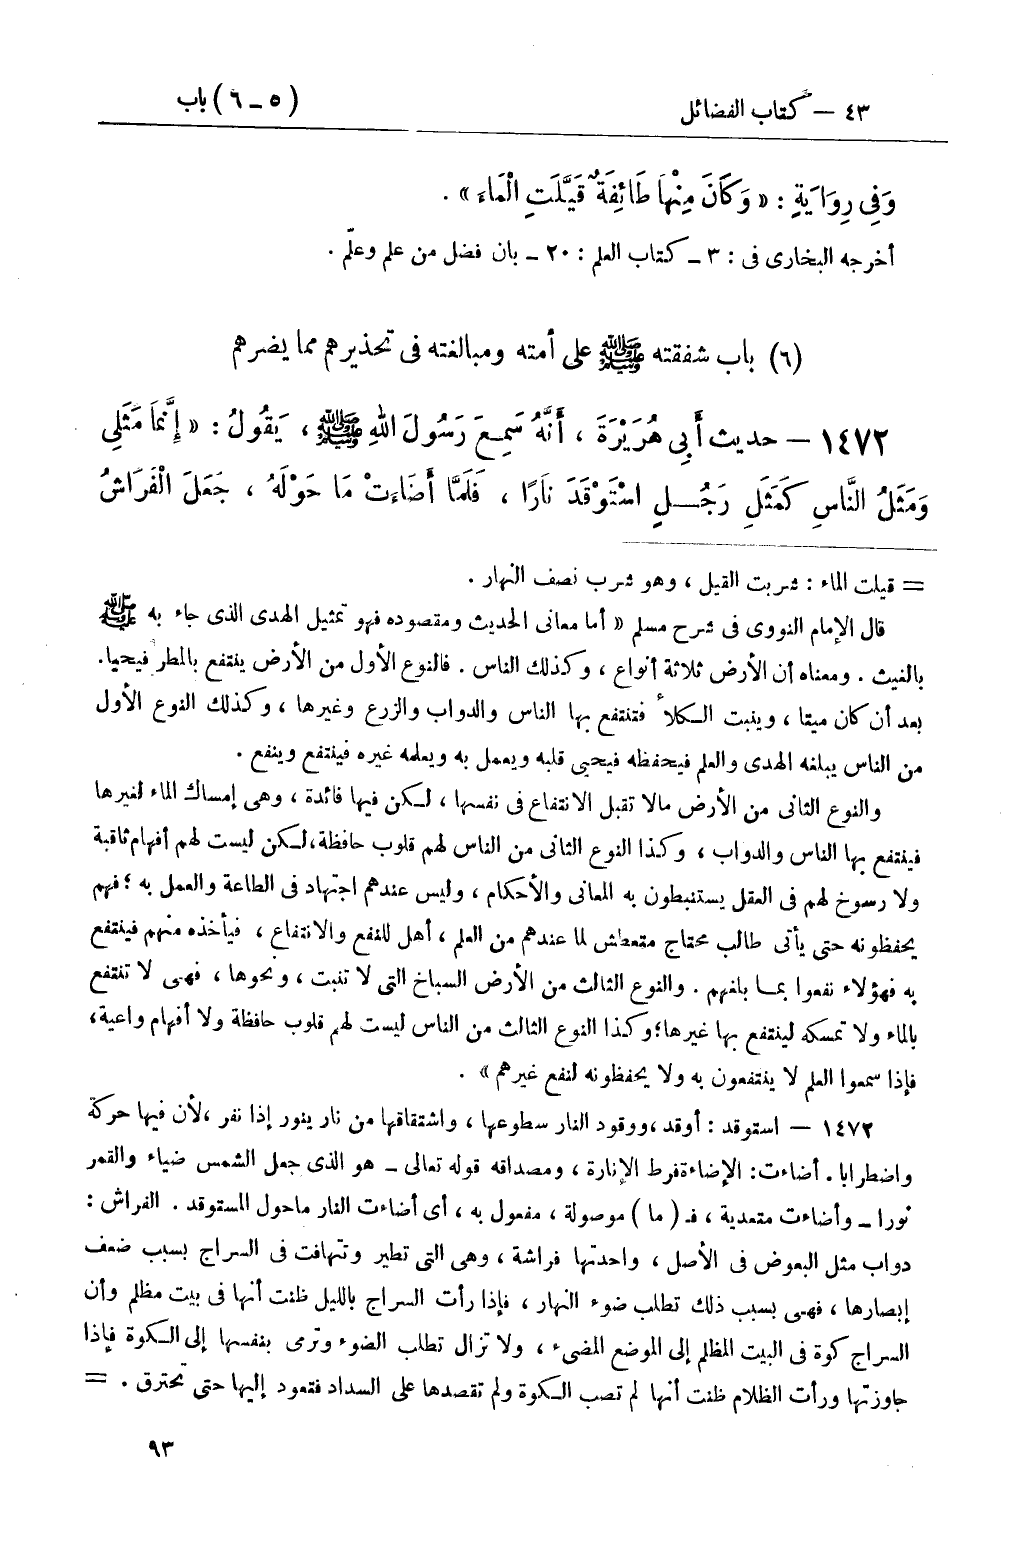 ٤٣ – كتاب الفضائل (٥ – ٦) باب
وَفِى رِوَايَةٍ : « وَكَانَ مِنْهَا طَائِفَةٌ قَيَّلَتِ الْمَاءَ » .
أخرجه البخارى فى : ٣ – كتاب العلم : ٢٠ – بان فضل من علم وعلّم .
(٦) باب شفقته ﷺ على أمته ومبالغته فى تحذيرهم مما يضرهم
١٤٧٢ – حديث أَبِى هُرَيْرَةَ ، أَنَّهُ سَمِعَ رَسُولَ اللهِ ﷺ ، يَقُولُ : « إِنَّمَا مَثَلِى
وَمَثَلُ النَّاسِ كَمَثَلِ رَجُلٍ اسْتَوْقَدَ نَارًا ، فَلَمَّا أَضَاءَتْ مَا حَوْلَهُ ، جَعَلَ الْفَرَاشُ
= قيلت الماء : شربت القيل ، وهو شرب نصف النهار .
قال الإمام النووى فى شرح مسلم « أما معانى الحديث ومقصوده فهو تمثيل الهدى الذى جاء به ﷺ
بالغيث . ومعناه أن الأرض ثلاثة أنواع ، وكذلك الناس . فالنوع الأول من الأرض ينتفع بالمطر فيحيا.
بعد أن كان ميتا ، وينبت الكلأ فتنتفع بها الناس والدواب والزرع وغيرها ، وكذلك النوع الأول
من الناس يبلغه الهدى والعلم فيحفظه فيحيى قلبه ويعمل به ويعلمه غيره فينتفع وينفع .
والنوع الثانى من الأرض مالا تقبل الانتفاع فى نفسها ، لكن فيها فائدة ، وهى إمساك الماء لغيرها
فينتفع بها الناس والدواب ، وكذا النوع الثانى من الناس لهم قلوب حافظة، لكن ليست لهم أفهام ثاقبة
ولا رسوخ لهم فى العقل يستنبطون به المعانى والأحكام ، وليس عندهم اجتهاد فى الطاعة والعمل به ؛ فهم
يحفظونه حتى يأتى طالب محتاج متعطش لما عندهم من العلم ، أهل للنفع والانتفاع ، فيأخذه منهم فينتفع
به فهؤلاء نفعوا بما بلغهم . والنوع الثالث من الأرض السباخ التى لا تنبت ، ونحوها ، فهى لا تنتفع
بالماء ولا تمسكه لينتفع بها غيرها؛ وكذا النوع الثالث من الناس ليست لهم قلوب حافظة ولا أفهام واعية،
فإذا سمعوا العلم لا ينتفعون به ولا يحفظونه لنفع غيرهم » .
١٤٧٢ – استوقد : أوقد ،ووقود النار سطوعها ، واشتقاقها من نار ينور إذا نفر ،لأن فيها حركة
واضطرابا . أضاءت: الإضاءة فرط الإنارة ، ومصداقه قوله تعالى – هو الذى جعل الشمس ضياء والقمر
نورا – وأضاءت متعدية ، فـ ( ما ) موصولة ، مفعول به ، أى أضاءت النار ماحول المستوقد . الفراش :
دواب مثل البعوض فى الأصل ، واحدتها فراشة ، وهى التى تطير وتتهافت فى السراج بسبب ضعف
إبصارها ، فهى بسبب ذلك تطلب ضوء النهار ، فإذا رأت السراج بالليل ظنت أنها فى بيت مظلم وأن
السراج كوة فى البيت المظلم إلى الموضع المضىء ، ولا تزال تطلب الضوء وترمى بنفسها إلى الكوة فإذا
جاوزتها ورأت الظلام ظنت أنها لم تصب الكوة ولم تقصدها على السداد فتعود إليها حتى تحترق . =
٩٣